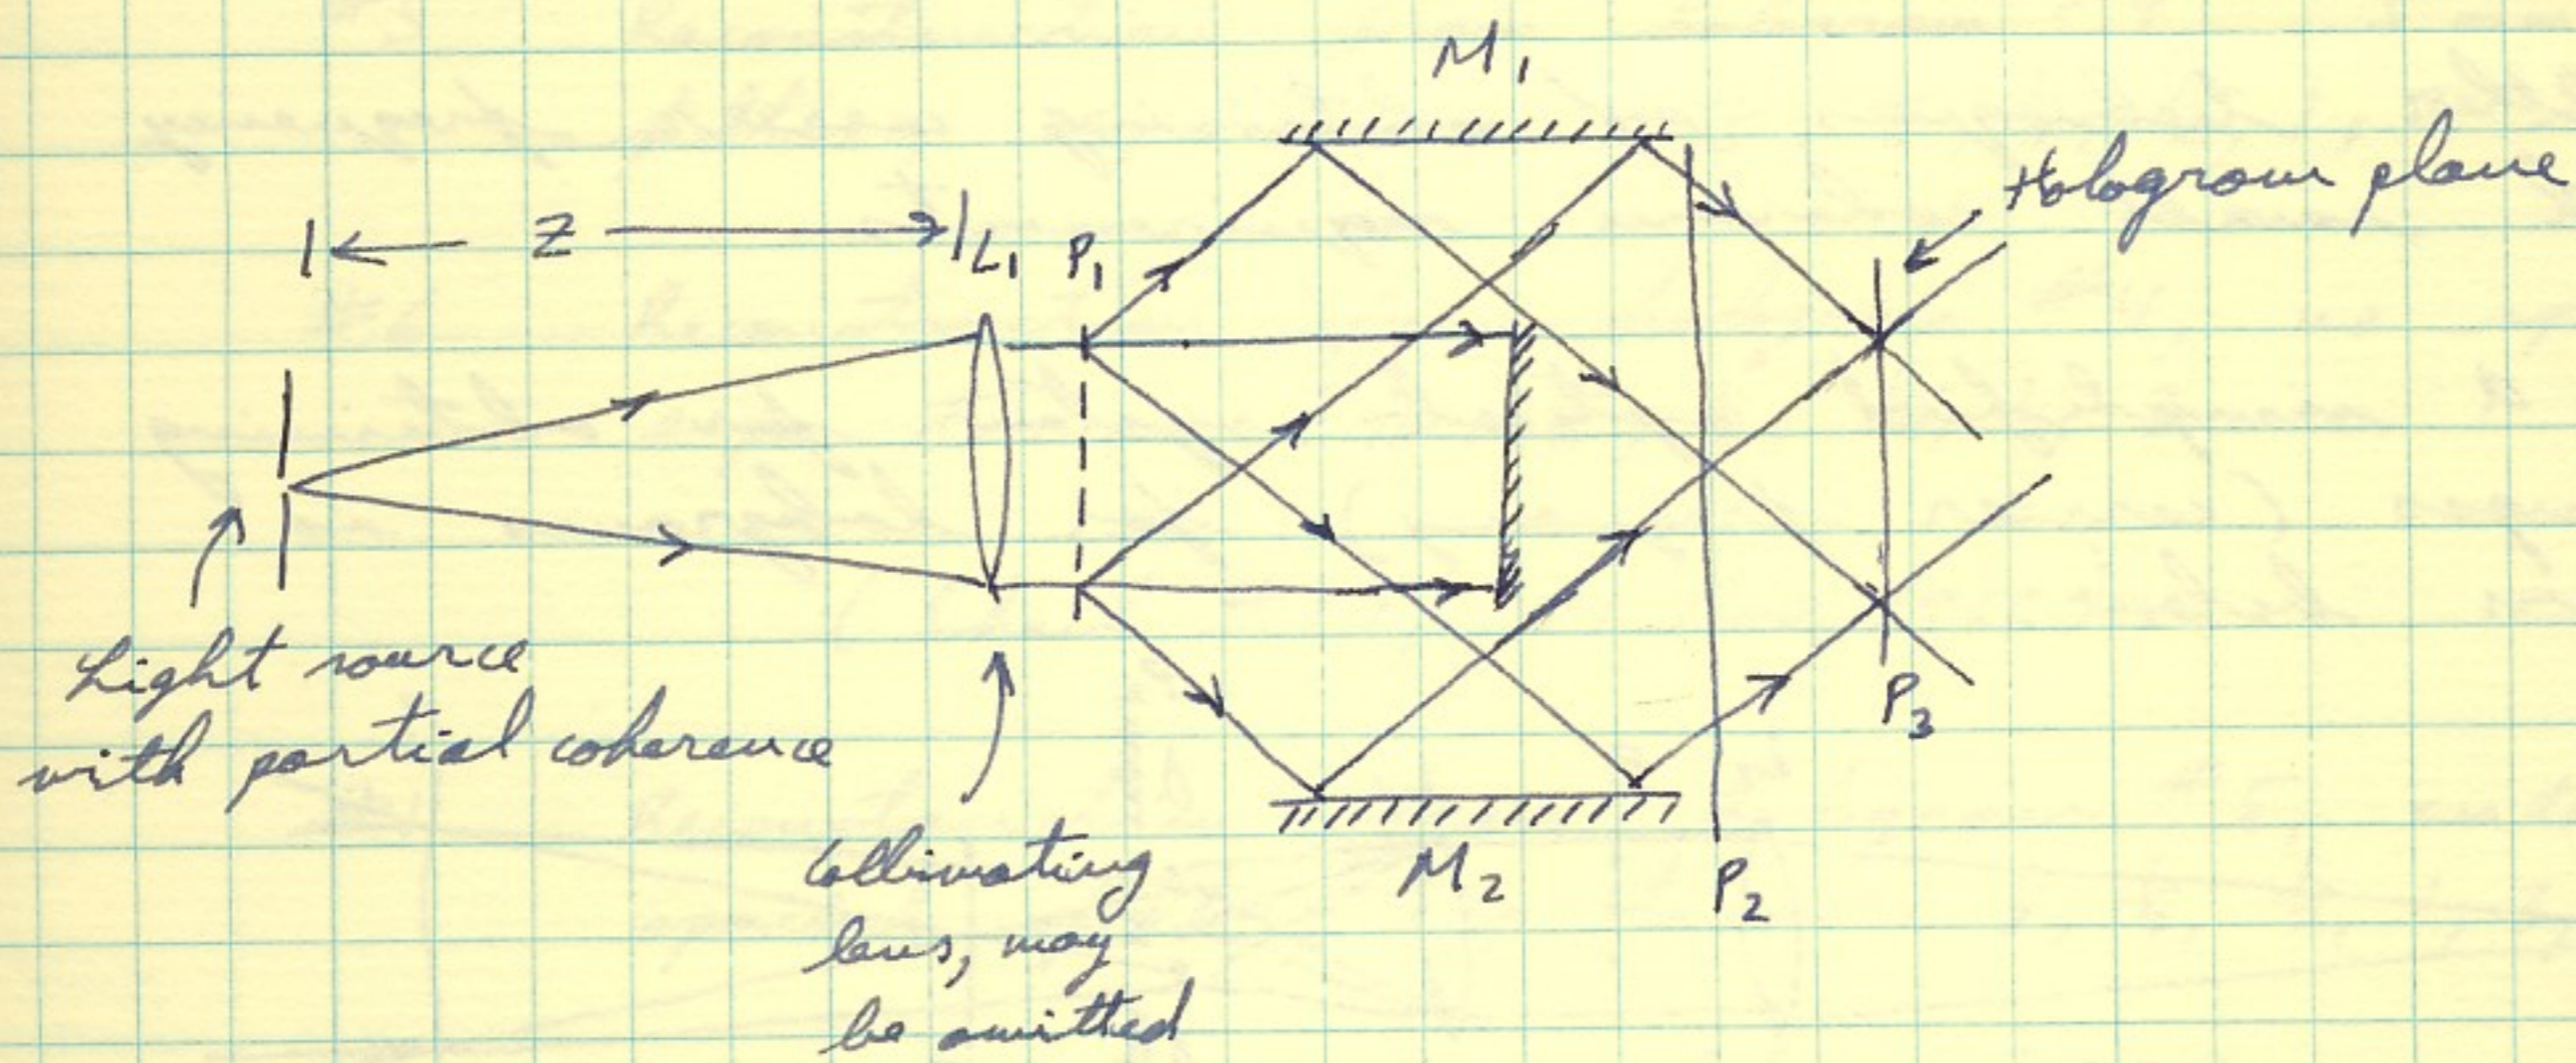 M1
Hologram plane
Z
L1
P1
Light source
with partial coherence
P3
Collimating
lens, may
be omitted
M2
P2